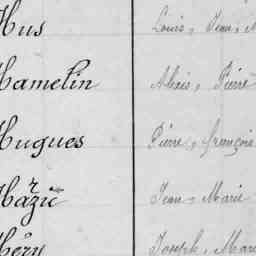 Hus Louis, Jean, M
Hamelin Alexis, Pierre
Hugues Pierre, François
Hazic Jean-Marie
Héry Joseph, Mari